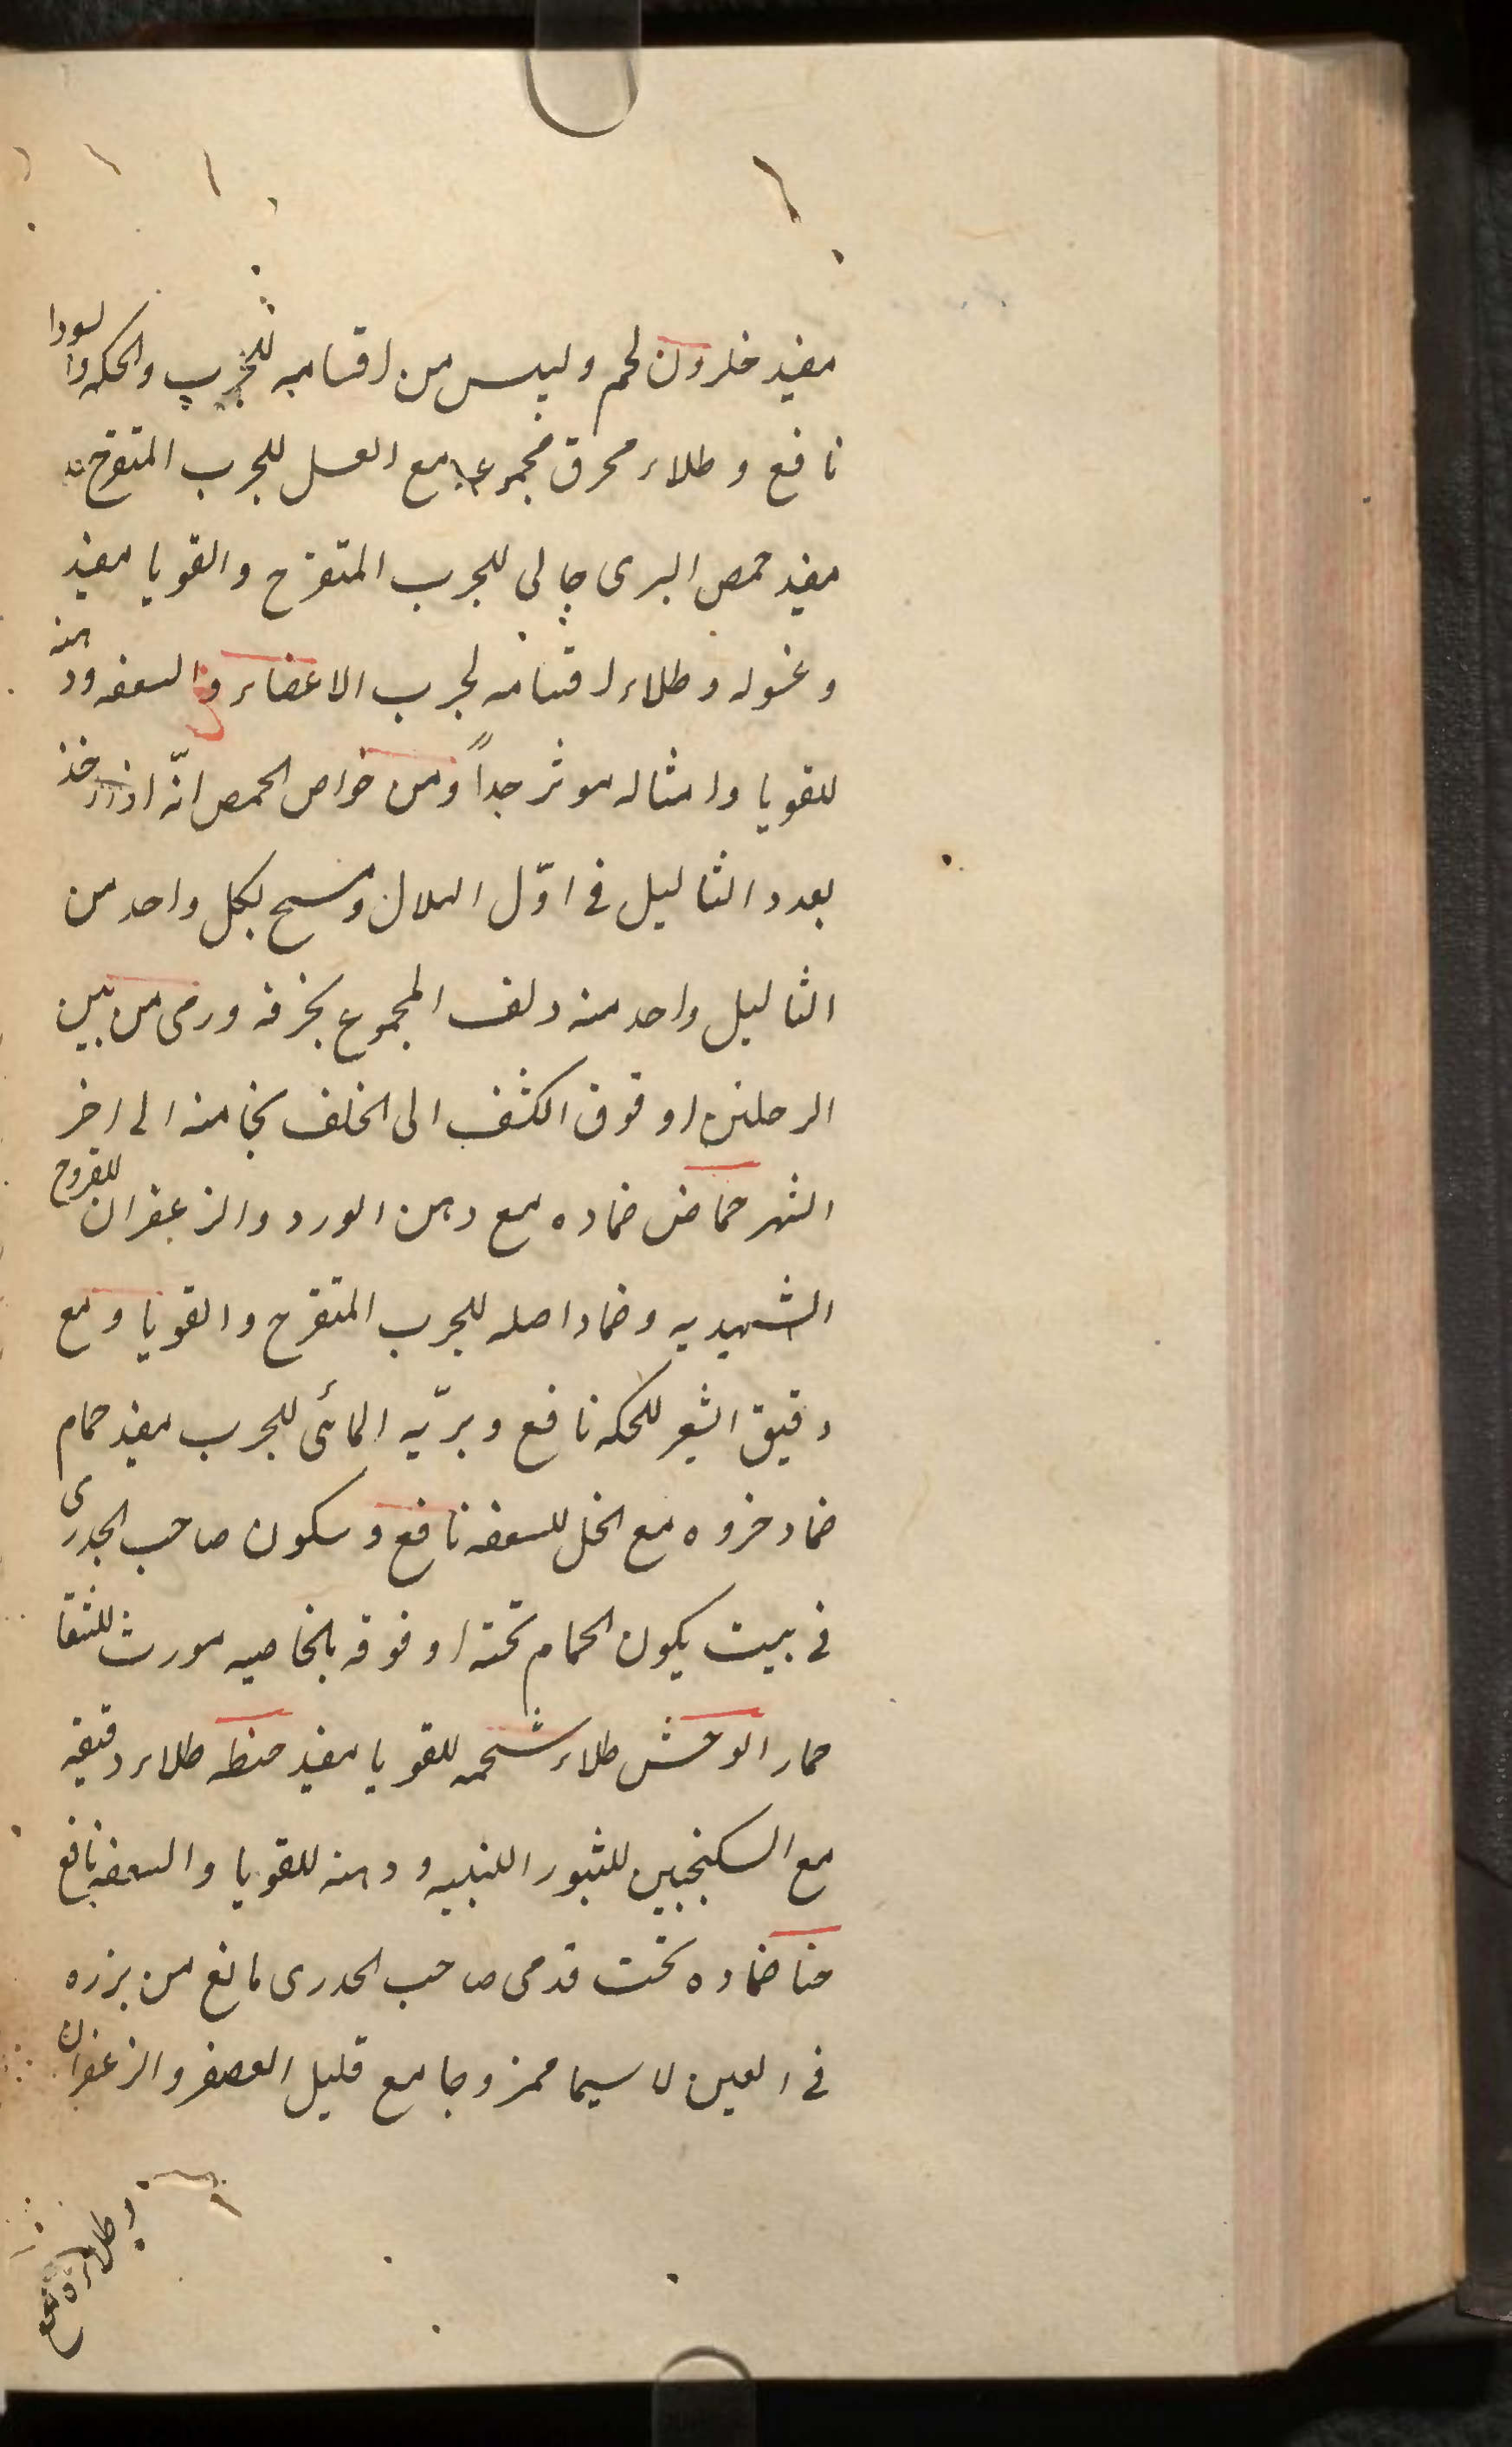 مفید حلزون لحم ولیس من اقسامه للجرب والحکه والسودا
نافع و طلاء محرق مجموعه مع العسل للجرب المتقرح
مفید حمص البری جالی للجرب المتقرح والقوبا مفید
وغسوله وطلاء اقسامه لجرب الاعضاء والسعفه ودهنه
للقوبا وامثاله موثر جداً ومن خواص الحمص انّه اذا اخذ
بعدد الثالیل فی اوّل الهلال ومسح بکل واحد من
الثالیل واحد منه ولف المجموع بخرقه ورمی من بین
الرجلین او فوق الکتف الی الخلف نجا منه الی اخر
الشهر حماض ضماده مع دهن الورد والزعفران للقروح
الشهدیه وضماد اصله للجرب المتقرح والقوبا ومع
دقیق الشعر للحکه نافع وبرّیه المائی للجرب مفید حمام
ضماد خروه مع الخل للسعفه نافع وسکون صاحب الجدری
فی بیت یکون الحمام تحته او فوقه بالخاصیه مورث للشفا
حمار الوحش طلاء شحمه للقوبا مفید حنطه طلاء دقیقه
مع السکنجبین للثبور اللبنیه ودهنه للقوبا والسعفه نافع
حنا ضماده تحت قدمی صاحب الجدری مانع من بزره
فی العین لا سیما ممزوجا مع قلیل العصفر والزعفران
وطلاءه مع